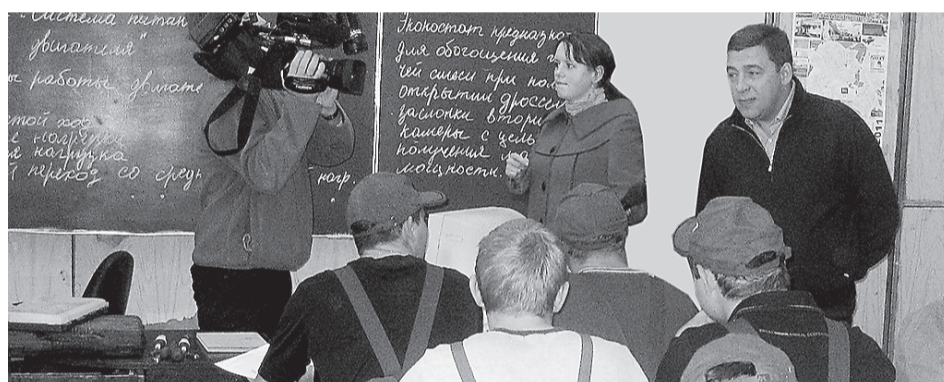 "Система питан
двигателя"
ы работы двигате
стой ход
е нагрузки
я нагрузка
й переход со средн
нагр.
Экономат предназнач
для обогощения
чей смеси при по
открытии дроссел
заслонки втори
камеры с цель
получения ма
мощности.
2011